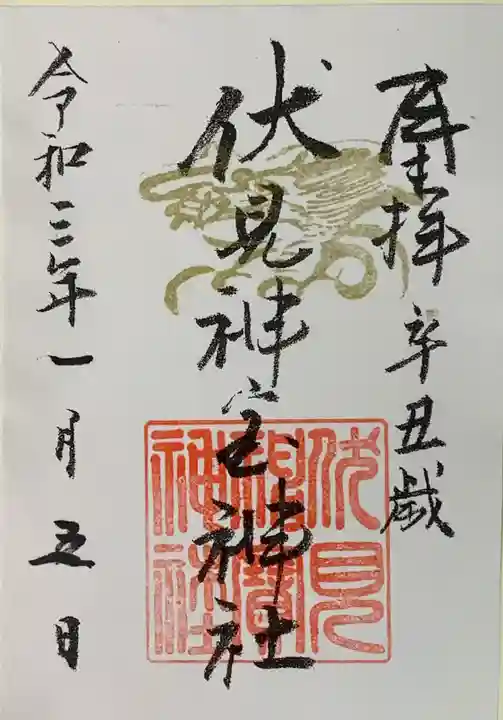 奉拝 辛丑歳
伏見神宝神社
令和三年一月五日
伏見
神寳
神社